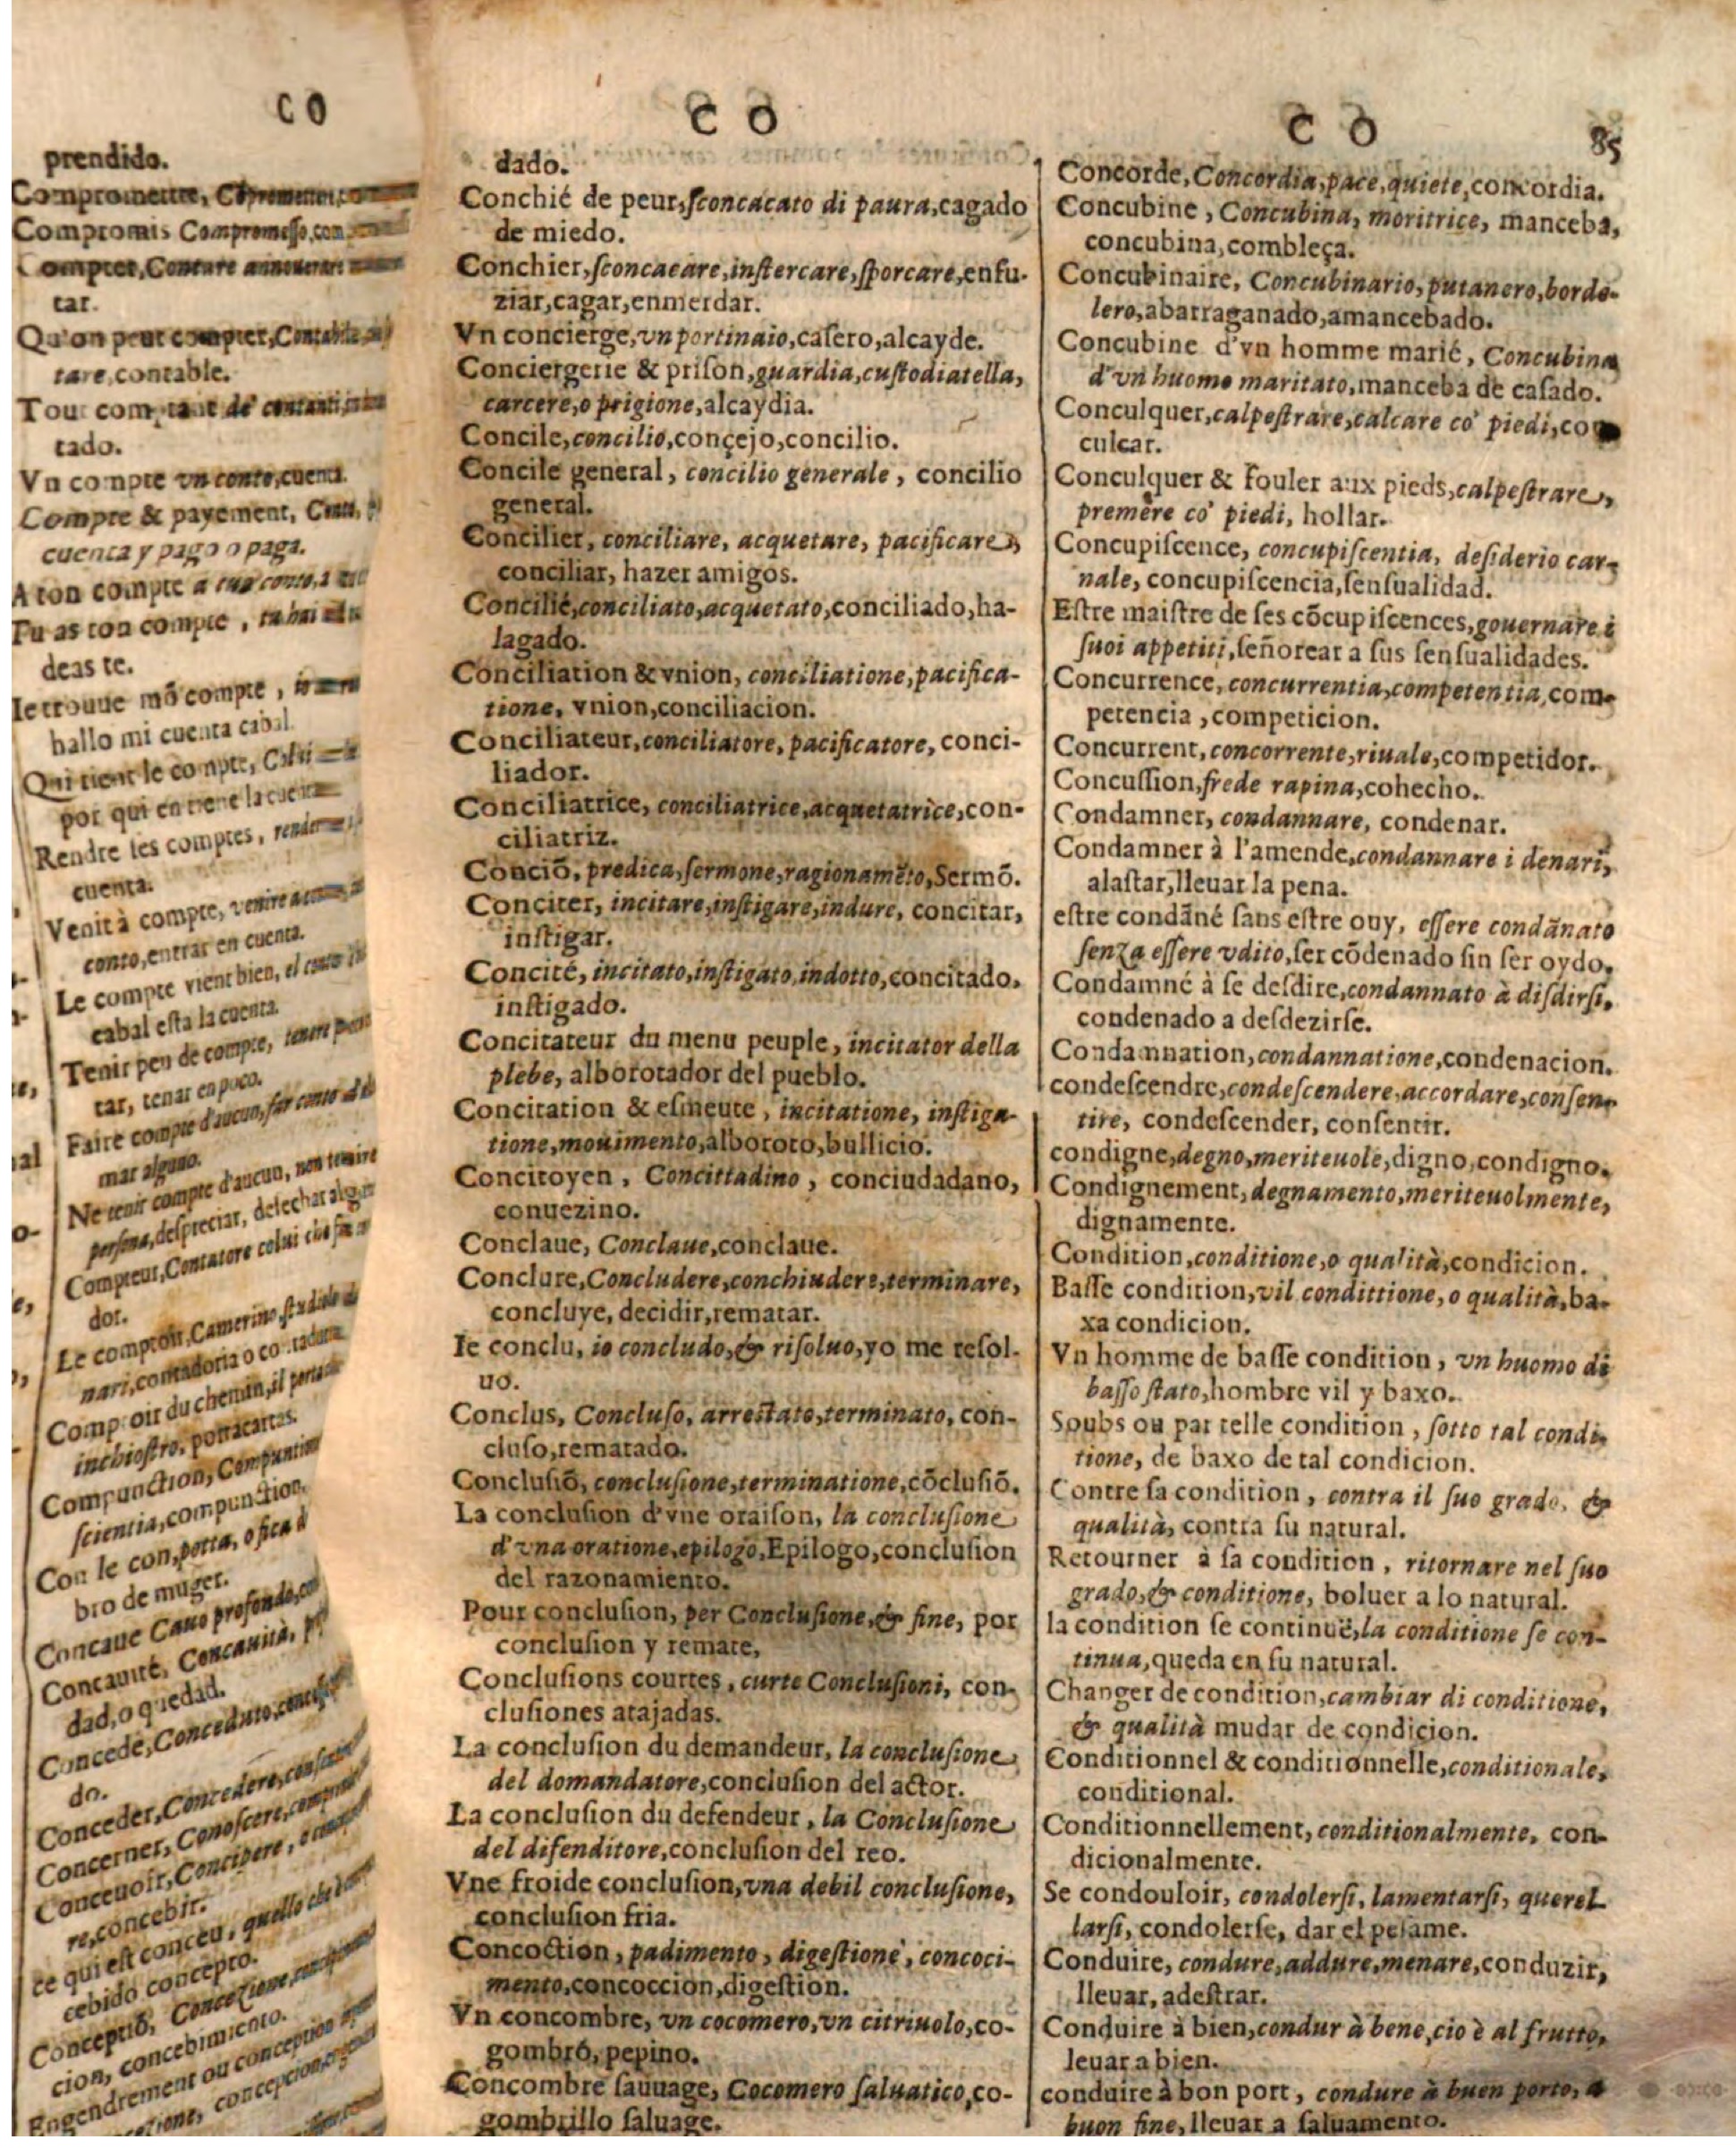 C O
prendido.
Compromettre,
Compromis Compromesso,
tar.
Qu'on peut compter,
tare,contable.
Tout comptant
tado.
Vn compte vn conto,cuenta.
Compte & payement,
cuenta y pago o paga.
A ton compte a tuo conto,
Tu as ton compte , tu hai
deas te.
Ie trouue mõ compte ,
hallo mi cuenta cabal.
Qui tient le compte,
por qui en tiene la cuenta
Rendre les comptes , render
cuenta.
Venir à compte, venire a
conto,entrar en cuenta.
Le compte vient bien, el conto
cabal esta la cuenta.
Tenir peu de compte, tener
tar, tenar en poco.
Faire compte d'aucun,far conto
mar alguno.
Ne tenir compte d'aucun, non tenire
persona,despreciar, desechar
Compteur,Contatore colui che
dor.
Le comptoir,Camerino,
nari,contadoria o
Comptoir du chemin,il
inchiostro, portacartas.
Compunction,
scientia,compunction.
Con le con,potta, o fica
bro de muger.
Concaue Cauo profondo,
Concauité, Concauità,
dad,o quedad.
Concede,Conceduto,
do.
Conceder,Concedere,
Concerner, Conoscere,
Conceuoir,Concipere,
re,concebir.
ce qui est conceu, quello che
cebido concepto.
Conceptiõ, Concezione,
cion, concebimiento.
Engendrement ou conception
concepcion,
C O
dado.
Conchié de peur,sconcacato di paura,cagado
de miedo.
Conchier,sconcacare,instercare,sporcare,enfu-
ziar,cagar,enmerdar.
Vn concierge,vn portinaio,casero,alcayde.
Conciergerie & prison,guardia,custodiatella,
carcere,o prigione,alcaydia.
Concile,concilio,conçejo,concilio.
Concile general , concilio generale , concilio
general.
Concilier, conciliare, acquetare, pacificare,
conciliar, hazer amigos.
Concilié,conciliato,acquetato,conciliado,ha-
lagado.
Conciliation & vnion, conciliatione,pacifica-
tione, vnion,conciliacion.
Conciliateur,conciliatore, pacificatore, conci-
liador.
Conciliatrice, conciliatrice,acquetatrice,con-
ciliatriz.
Conciõ, predica,sermone,ragionamẽto,Sermõ.
Conciter, incitare,instigare,indure, concitar,
instigar.
Concité, incitato,instigato,indotto,concitado,
instigado.
Concitateur du menu peuple, incitator della
plebe, alborotador del pueblo.
Concitation & esmeute , incitatione, instiga-
tione,mouimento,alboroto,bullicio.
Concitoyen , Concittadino , conciudadano,
conuezino.
Conclaue, Conclaue,conclaue.
Conclure,Concludere,conchiudere,terminare,
concluye, decidir,rematar.
Ie conclu, io concludo,& risoluo,yo me resol-
uo.
Conclus, Concluso, arrestato,terminato, con-
cluso,rematado.
Conclusiõ, conclusione,terminatione,cõclusiõ.
La conclusion d'vne oraison, la conclusione
d'vna oratione,epilogo,Epilogo,conclusion
del razonamiento.
Pour conclusion, per Conclusione,& fine, por
conclusion y remate,
Conclusions courtes , curte Conclusioni, con-
clusiones atajadas.
La conclusion du demandeur, la conclusione
del domandatore,conclusion del actor.
La conclusion du defendeur , la Conclusione
del difenditore,conclusion del reo.
Vne froide conclusion,vna debil conclusione,
conclusion fria.
Concoction , padimento , digestione , concoci-
mento,concoccion,digestion.
Vn concombre, vn cocomero,vn citriuolo,co-
gombro, pepino.
Concombre sauuage, Cocomero saluatico,co-
gombrillo saluage.
C O 85
Concorde,Concordia,pace,quiete,concordia.
Concubine , Concubina, moritrice, manceba,
concubina,combleça.
Concubinaire, Concubinario,putanero,borde-
lero,abarraganado,amancebado.
Concubine d'vn homme marié, Concubina
d'vn huomo maritato,manceba de casado.
Conculquer,calpestrare,calcare co' piedi,con
culcar.
Conculquer & fouler aux pieds,calpestrare,
premere co' piedi, hollar.
Concupiscence, concupiscentia, desiderio car-
nale, concupiscencia,sensualidad.
Estre maistre de ses cõcupiscences,gouernare i
suoi appetiti,señorear a sus sensualidades.
Concurrence,concurrentia,competentia,com-
petencia ,competicion.
Concurrent,concorrente,riuale,competidor.
Concussion,frede rapina,cohecho.
Condamner, condannare, condenar.
Condamner à l'amende,condannare i denari,
alastar,lleuar la pena.
estre condãné sans estre ouy, essere condãnato
senza essere vdito,ser cõdenado sin ser oydo.
Condamné à se desdire,condannato à disdirsi,
condenado a desdezirse.
Condamnation,condannatione,condenacion.
condescendre,condescendere,accordare,consen-
tire, condescender, consentir.
condigne,degno,meriteuole,digno,condigno.
Condignement,degnamento,meriteuolmente,
dignamente.
Condition,conditione,o qualità,condicion.
Basse condition,vil condittione,o qualità,ba-
xa condicion.
Vn homme de basse condition , vn huomo di
basso stato,hombre vil y baxo.
Soubs ou par telle condition , sotto tal condi-
tione, de baxo de tal condicion.
Contre sa condition , contra il suo grado, &
qualità, contra su natural.
Retourner à sa condition , ritornare nel suo
grado,& conditione, boluer a lo natural.
la condition se continuë,la conditione se con-
tinua,queda en su natural.
Changer de condition,cambiar di conditione,
& qualità mudar de condicion.
Conditionnel & conditionnelle,conditionale,
conditional.
Conditionnellement,conditionalmente, con-
dicionalmente.
Se condouloir, condolersi, lamentarsi, querel-
larsi, condolerse, dar el pesame.
Conduire, condure,addure,menare,conduzir,
lleuar, adestrar.
Conduire à bien,condur à bene,cio è al frutto,
leuar a bien.
conduire à bon port , condure à buen porto, a
buon fine,lleuar a saluamento.